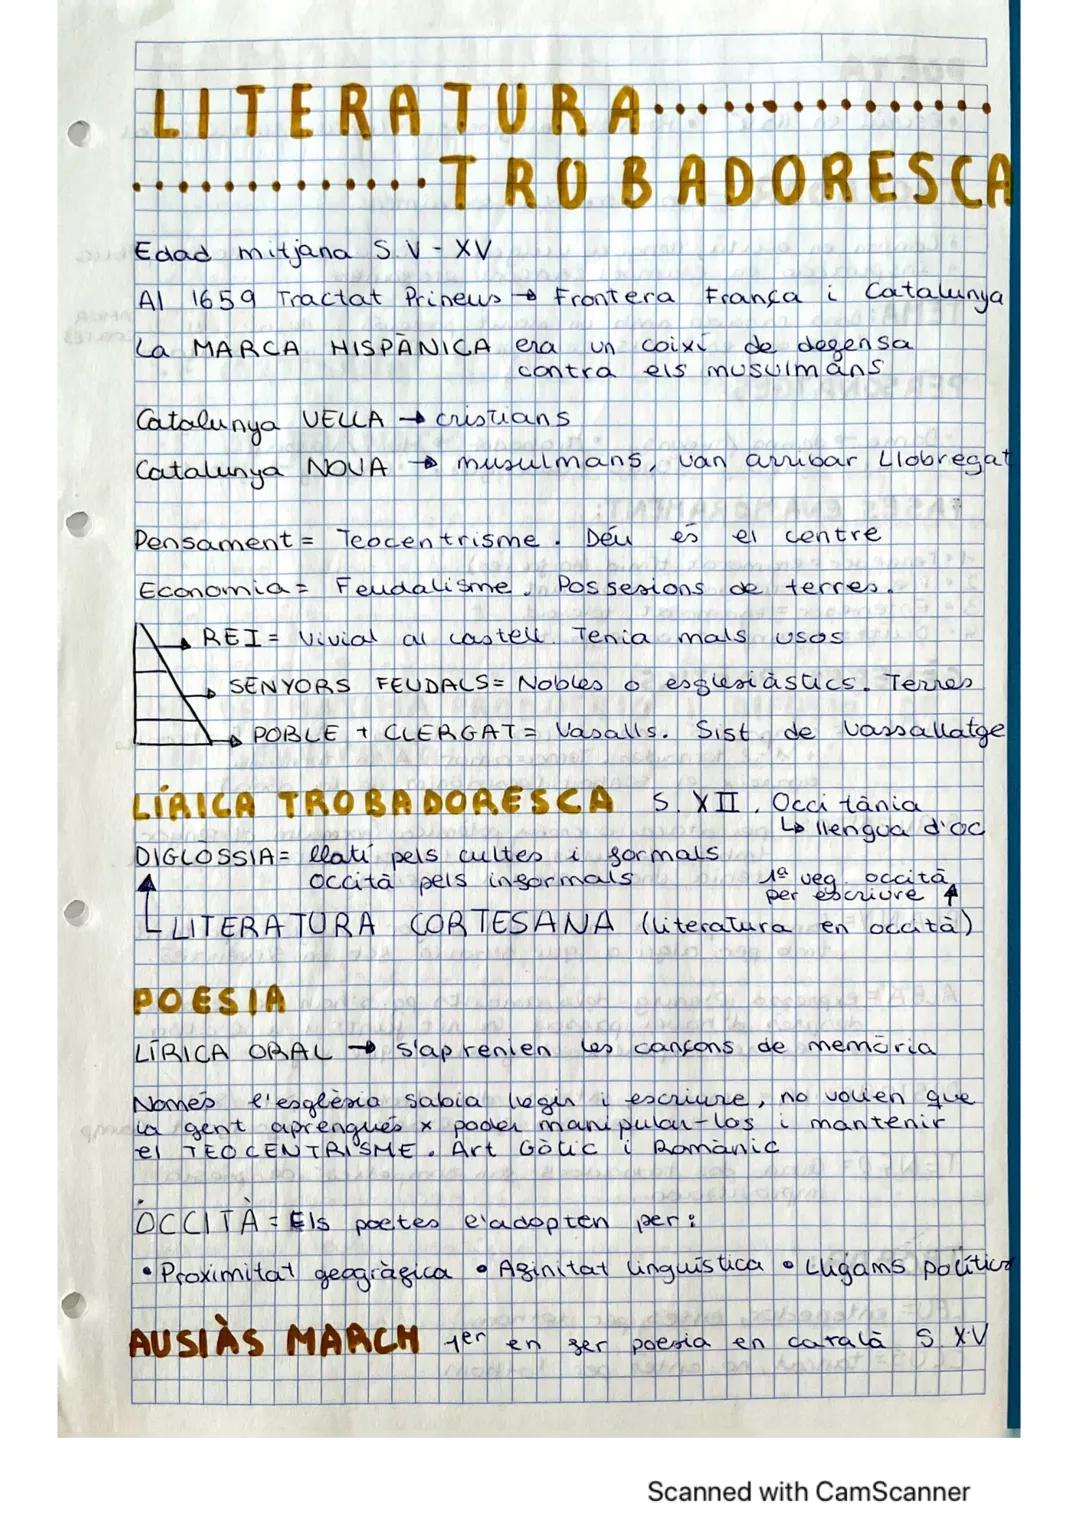 LITERATURA
TROBADORESCA
Edad mitjana S. V - XV
Al 1659 Tractat Prineus → Frontera França i Catalunya
La MARCA HISPÀNICA era un coixí de defensa
contra els musulmans
Catalunya VELLA → cristians
Catalunya NOVA → musulmans, van arribar Llobregat
Pensament = Teocentrisme. Déu és el centre
Economia = Feudalisme. Possesions de terres.
REI = Vivial al castell. Tenia mals usos
SENYORS FEUDALS = Nobles o esglesiàstics. Terres
POBLE + CLERGAT = Vasalls. Sist de vassallatge
LÍRICA TROBADORESCA S. XII. Occitània
↳ llengua d'oc
DIGLÒSSIA = llatí pels cultes i formals
occità pels informals
1ª veg. occità
per escriure
LITERATURA CORTESANA (literatura en occità)
POESIA
LÍRICA ORAL → s'aprenien les cançons de memòria
Només l'esglèsia sabia llegir i escriure, no volien que
la gent aprengués x poder manipular-los i mantenir
el TEOCENTRISME. Art Gòtic i Romànic
OCCITÀ = Els poetes l'adopten per:
• Proximitat geogràfica • Afinitat lingüística • Lligams polítics
AUSIÀS MARCH 1er en fer poesia en català S. XV
Scanned with CamScanner